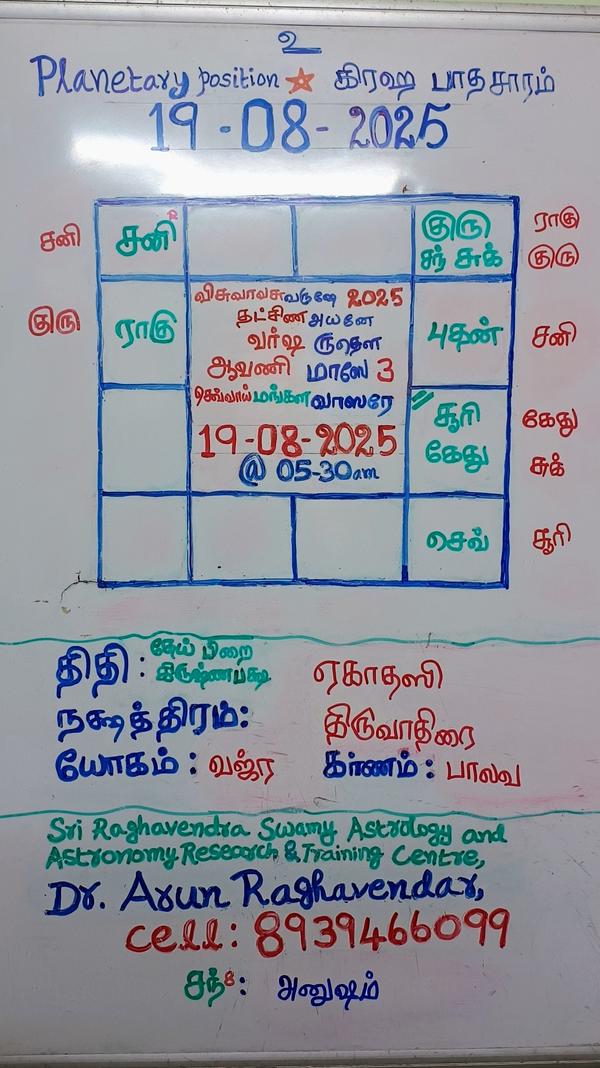 உ
Planetary position கிரஹ பாதசாரம்
19-08-2025
சனி
குரு
சனி R
ராகு
குரு
சந் சுக்
புதன்
சூரி
கேது
செவ்
ராகு
குரு
சனி
கேது
சுக்
சூரி
விசுவாவசுவருஷே 2025
தட்சிண அயனே
வர்ஷ ருதௌ
ஆவணி மாஸே 3
செவ்வாய் மங்களவாஸரே
19-08-2025
@ 05-30am
திதி: தேய் பிறை கிருஷ்ணபக்ஷ ஏகாதஸி
நக்ஷத்திரம்: திருவாதிரை
யோகம்: வஜ்ர கர்ணம்: பாலவ
Sri Raghavendra Swamy Astrology and
Astronomy Research & Training Centre,
Dr. Arun Raghavendar,
cell: 8939466099
சந்8: அனுஷம்